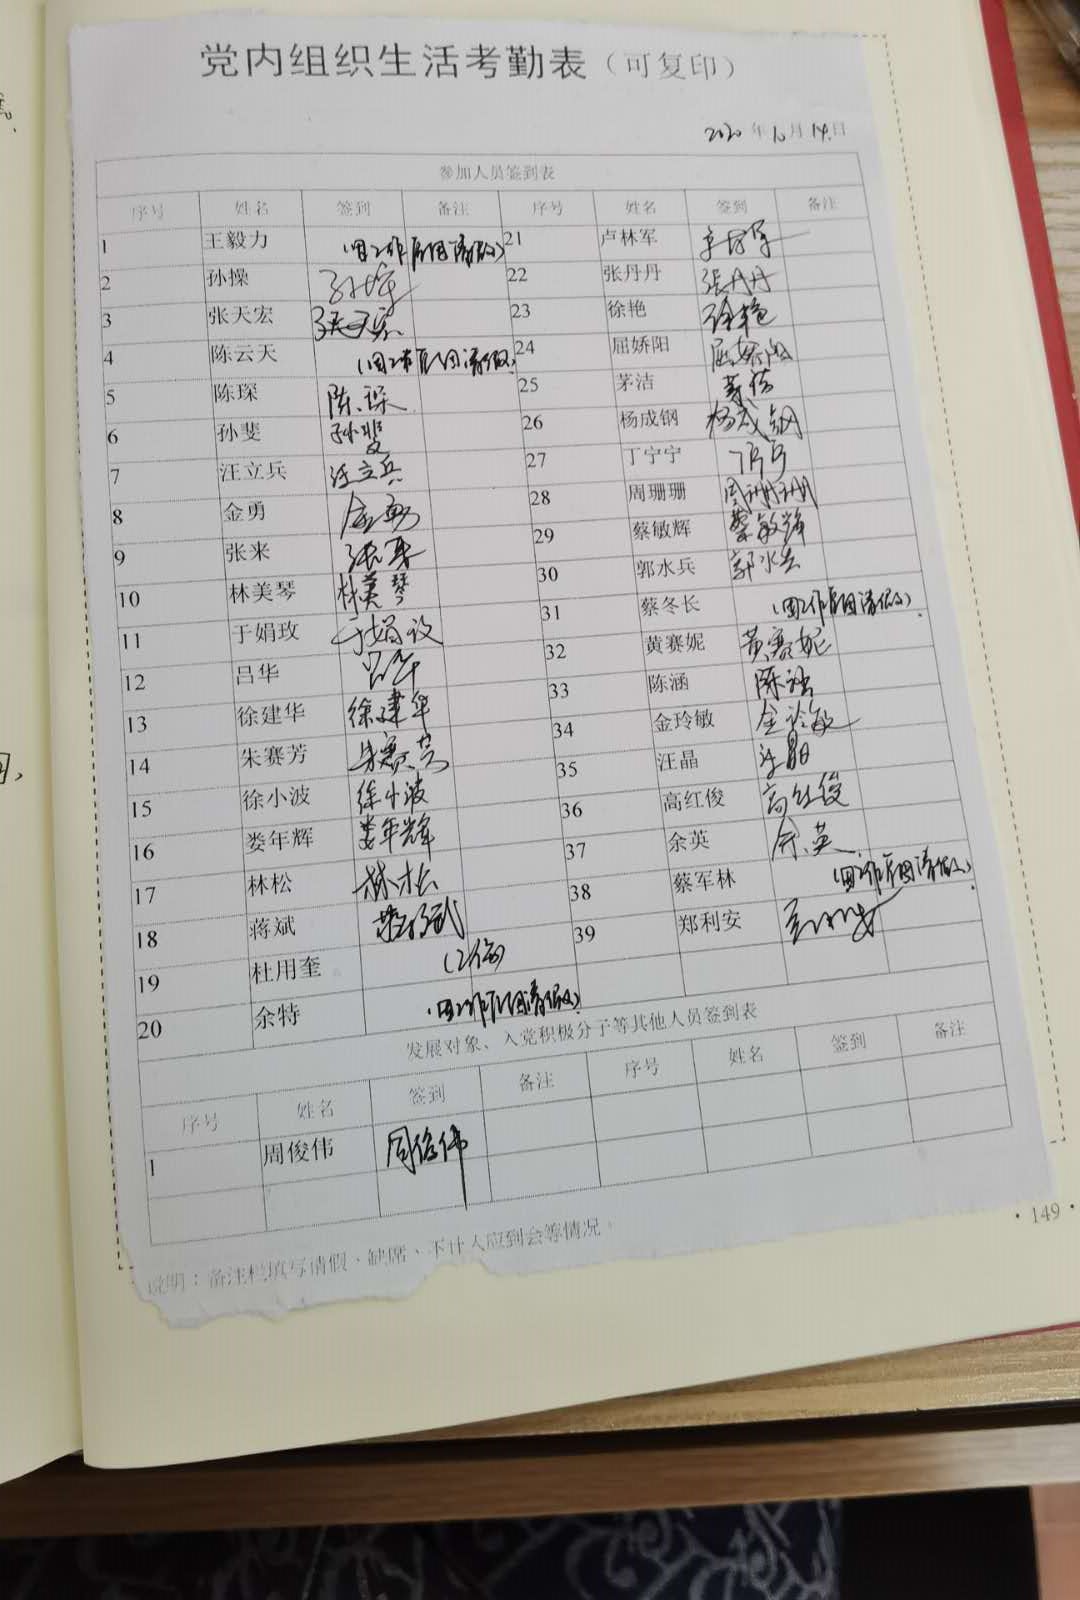 党内组织生活考勤表（可复印）
2020年10月14日
参加人员签到表
序号 姓名 签到 备注 序号 姓名 签到 备注
1 王毅力 （因工作原因请假） 21 卢林军
2 孙操 22 张丹丹 张丹丹
3 张天宏 张天宏 23 徐艳 徐艳
4 陈云天 （因工作原因请假） 24 屈娇阳 屈娇阳
5 陈琛 陈琛 25 茅洁 茅洁
6 孙斐 孙斐 26 杨成钢 杨成钢
7 汪立兵 汪立兵 27 丁宁宁 丁宁宁
8 金勇 金勇 28 周珊珊 周珊珊
9 张来 张来 29 蔡敏辉 蔡敏辉
10 林美琴 林美琴 30 郭水兵 郭水兵
11 于娟玫 于娟玫 31 蔡冬长 （因工作原因请假）
12 吕华 吕华 32 黄赛妮 黄赛妮
13 徐建华 徐建华 33 陈涵 陈涵
14 朱赛芳 朱赛芳 34 金玲敏 金玲敏
15 徐小波 徐小波 35 汪晶 汪晶
16 娄年辉 娄年辉 36 高红俊 高红俊
17 林松 林松 37 余英 余英
18 蒋斌 38 蔡军林 （因工作原因请假）
19 杜用奎 39 郑利安
20 余特 （因工作原因请假）
发展对象、入党积极分子等其他人员签到表
序号 姓名 签到 备注 序号 姓名 签到 备注
1 周俊伟 周俊伟
说明：备注栏填写请假、缺席、不计入应到会等情况。
· 149 ·